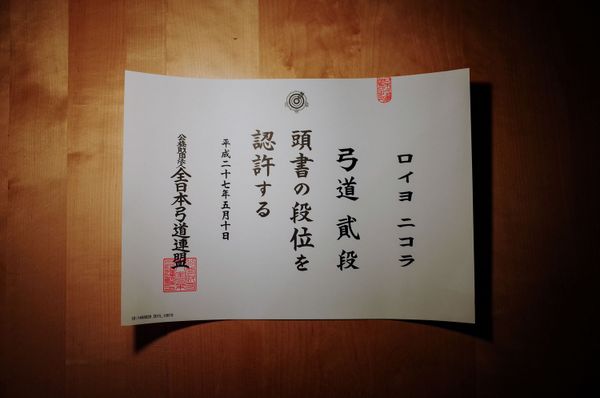 ロイヨ ニコラ
弓道 貳段
頭書の段位を
認許する
平成二十七年五月十日
公益財団法人全日本弓道連盟